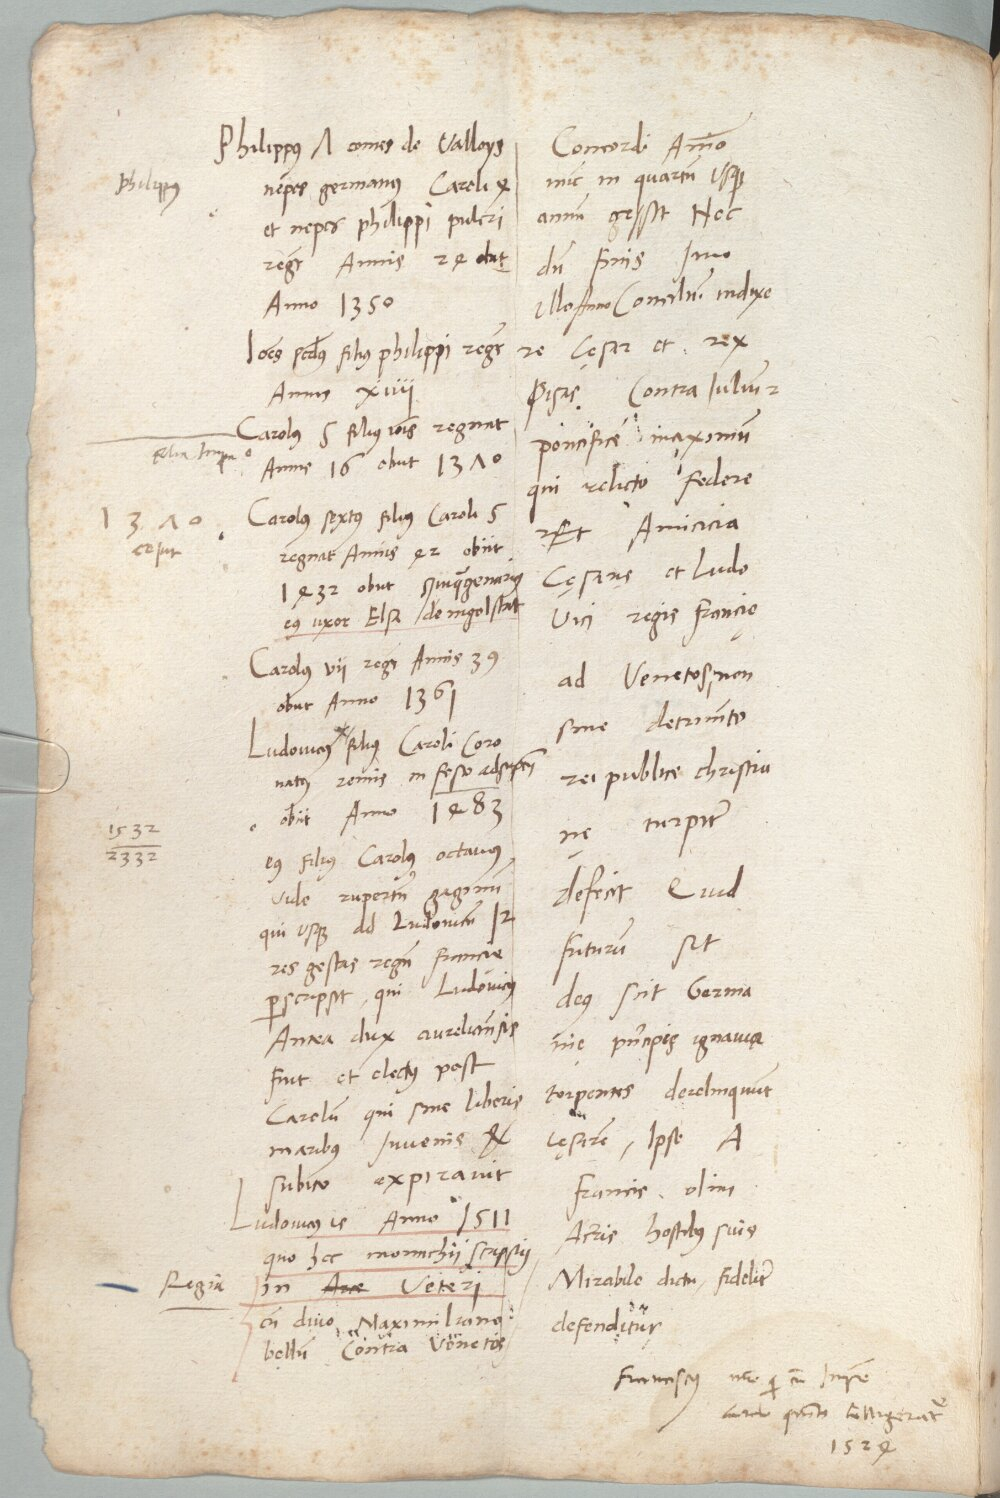 Philippus Λ comes de Valloys
Philippus
nepos germanus Caroli 4
et nepos philippi pulcri
regt Annis 24 obiit
Anno 1350
Ioēs scdus filius philippi regt
Annis xiiii
Carolus 5 filius iois regnat
Annis 16 obiit 13Λ0
Carolus sextus filius Caroli 5
13Λ0
regnat Annis 42 obiit
1432 obiit
eius uxor Elsa de ingolstat
Carolus vii regt Annis 39
obiit Anno 1361
Ludovicus filius Caroli Coro
natus remis in festo
obiit Anno 1483
1532
2332
eius filius Carolus octavus
vide rupertum gaginum
qui usque ad Ludovicum 12
res gestas regum francie
perscripsit, qui Ludovicus
Antea dux aurelianensis
fuit et electus post
Carolum qui sine liberis
maribus Iuvenis &
subito expiravit
Ludovicus is Anno 1511
quo hec monachij scripsi
in Arce Veteri
cum divo Maximiliano
bellum Contra Venetos
Concordi Animo
nunc in quartum usque
annum gessit Nec
dum finis Imo
illo Anno Concilium indixe
re Cesar et rex
Pisis Contra Iulium 2
pontificem maximum
qui relicto federe
Et Amicicia
Cesaris et Ludo
vici regis francie
ad Venetos non
sine detrimento
rei publice christia
ne turpiter
defecit Quid
futurum sit
deus scit Germa
nie principes ignavia
torpentes derelinquunt
Cesarem, Ipse A
francis olim
Acris hostibus suis
Mirabile dictu, fideliter
defenditur
Franciscus
quinto belligerat
1524